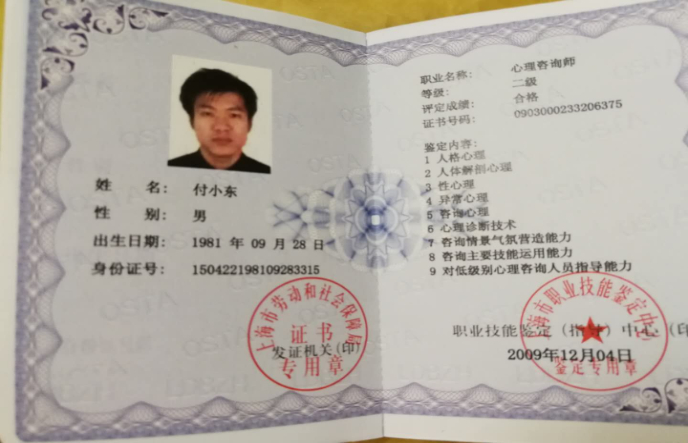 姓 名: 付小东
性 别: 男
出生日期: 1981 年 09 月 28 日
身份证号: 150422198109283315
上海市劳动和社会保障局
证书
发证机关(印)
专用章
职业名称: 心理咨询师
等级: 二级
评定成绩: 合格
证书号码: 0903000233206375
鉴定内容:
1 人格心理
2 人体解剖心理
3 性心理
4 异常心理
5 咨询心理
6 心理诊断技术
7 咨询情景气氛营造能力
8 咨询主要技能运用能力
9 对低级别心理咨询人员指导能力
上海市职业技能鉴定中心
职业技能鉴定(指导)中心(印
2009年12月04日
鉴定专用章